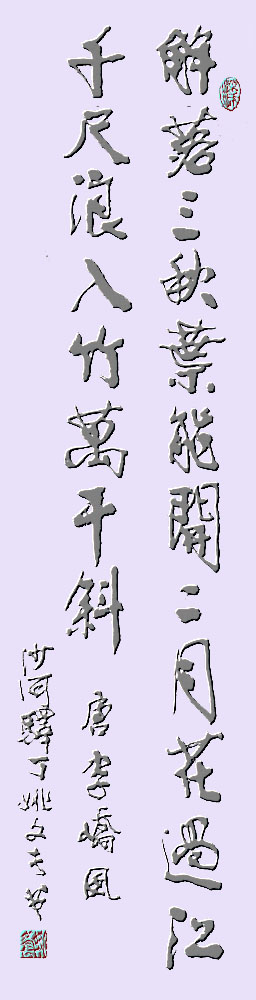 解落三秋葉能開二月花過江
千尺浪入竹萬干斜
唐李嶠風
沙河驛丁姚文